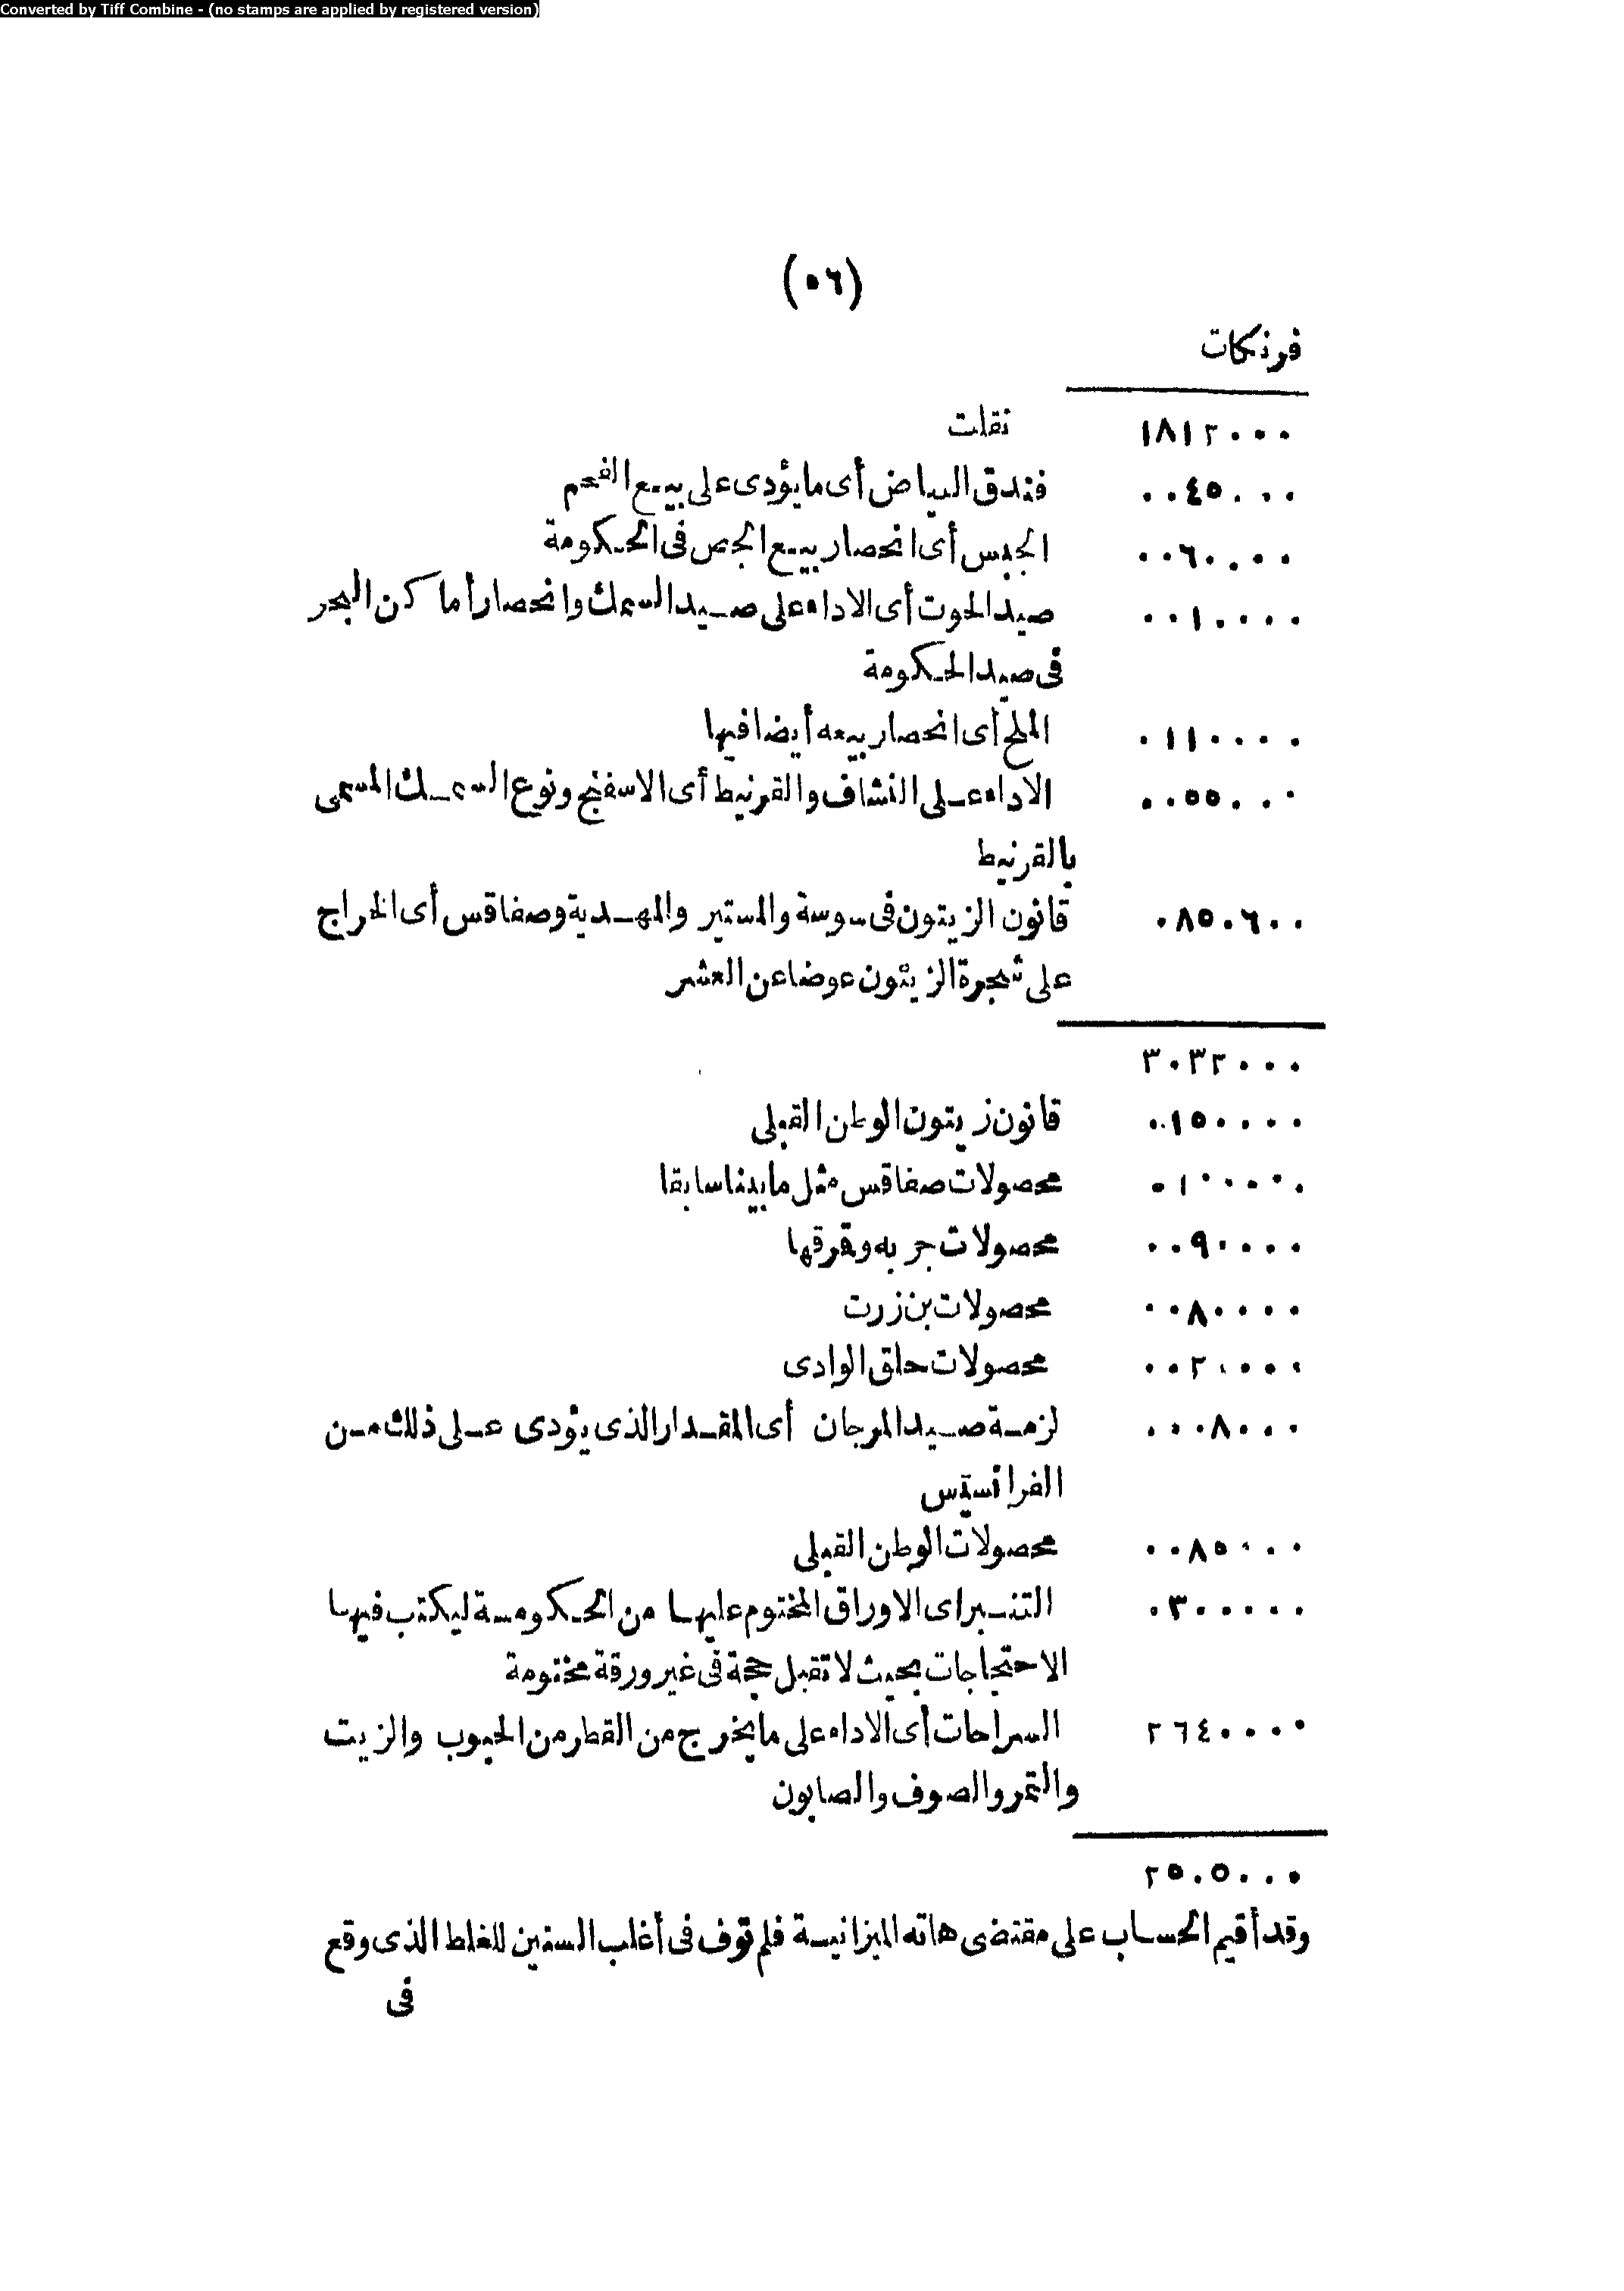 Converted by Tiff Combine - (no stamps are applied by registered version)
(٥٦)
فرنكات
١٨١٢٠٠٠ نقلت
٠٠٤٥٠٠٠ فندق البياض أى ما يؤدى على بيع الفحم
٠٠٦٠٠٠٠ الجبس أى انحصار بيع الجص فى الحكومة
٠٠١٠٠٠٠ صيد الحوت أى الاداء على صيد السمك وانحصار أماكن البحر
فى صيد الحكومة
٠١١٠٠٠٠ الملح أى انحصار بيعه أيضا فيها
٠٠٥٥٠٠٠ الاداء على النشاف والقرنيط أى الاسفنج ونوع السمك المسمى
بالقرنيط
٠٨٥٠٦٠٠ قانون الزيتون فى سوسة والمستير والمهدية وصفاقس أى الخراج
على شجرة الزيتون عوضا عن العشر
٣٠٣٢٠٠٠
٠١٥٠٠٠٠ قانون زيتون الوطن القبلى
٠١٠٠٠٠٠ محصولات صفاقس مثل ما بينا سابقا
٠٠٩٠٠٠٠ محصولات جربه وقرقها
٠٠٨٠٠٠٠ محصولات بن زرت
٠٠٢٠٠٠٠ محصولات حلق الوادى
٠٠٠٨٠٠٠ لزمة صيد المرجان أى المقدار الذى يؤدى على ذلك من
الفرانسيس
٠٠٨٥٠٠٠ محصولات الوطن القبلى
٠٣٠٠٠٠٠ التنبراى الاوراق المختوم عليها من الحكومة ليكتب فيها
الاحتجاجات بحيث لا تقبل حجة فى غير ورقة مختومة
٢٦٤٠٠٠٠ السراحات أى الاداء على ما يخرج من القطر من الحبوب والزيت
والتمر والصوف والصابون
٢٥٠٥٠٠٠
وقد أقيم الحساب على مقتضى هاته الميزانية فلم توف فى أغلب السنين للغلط الذى وقع
فى